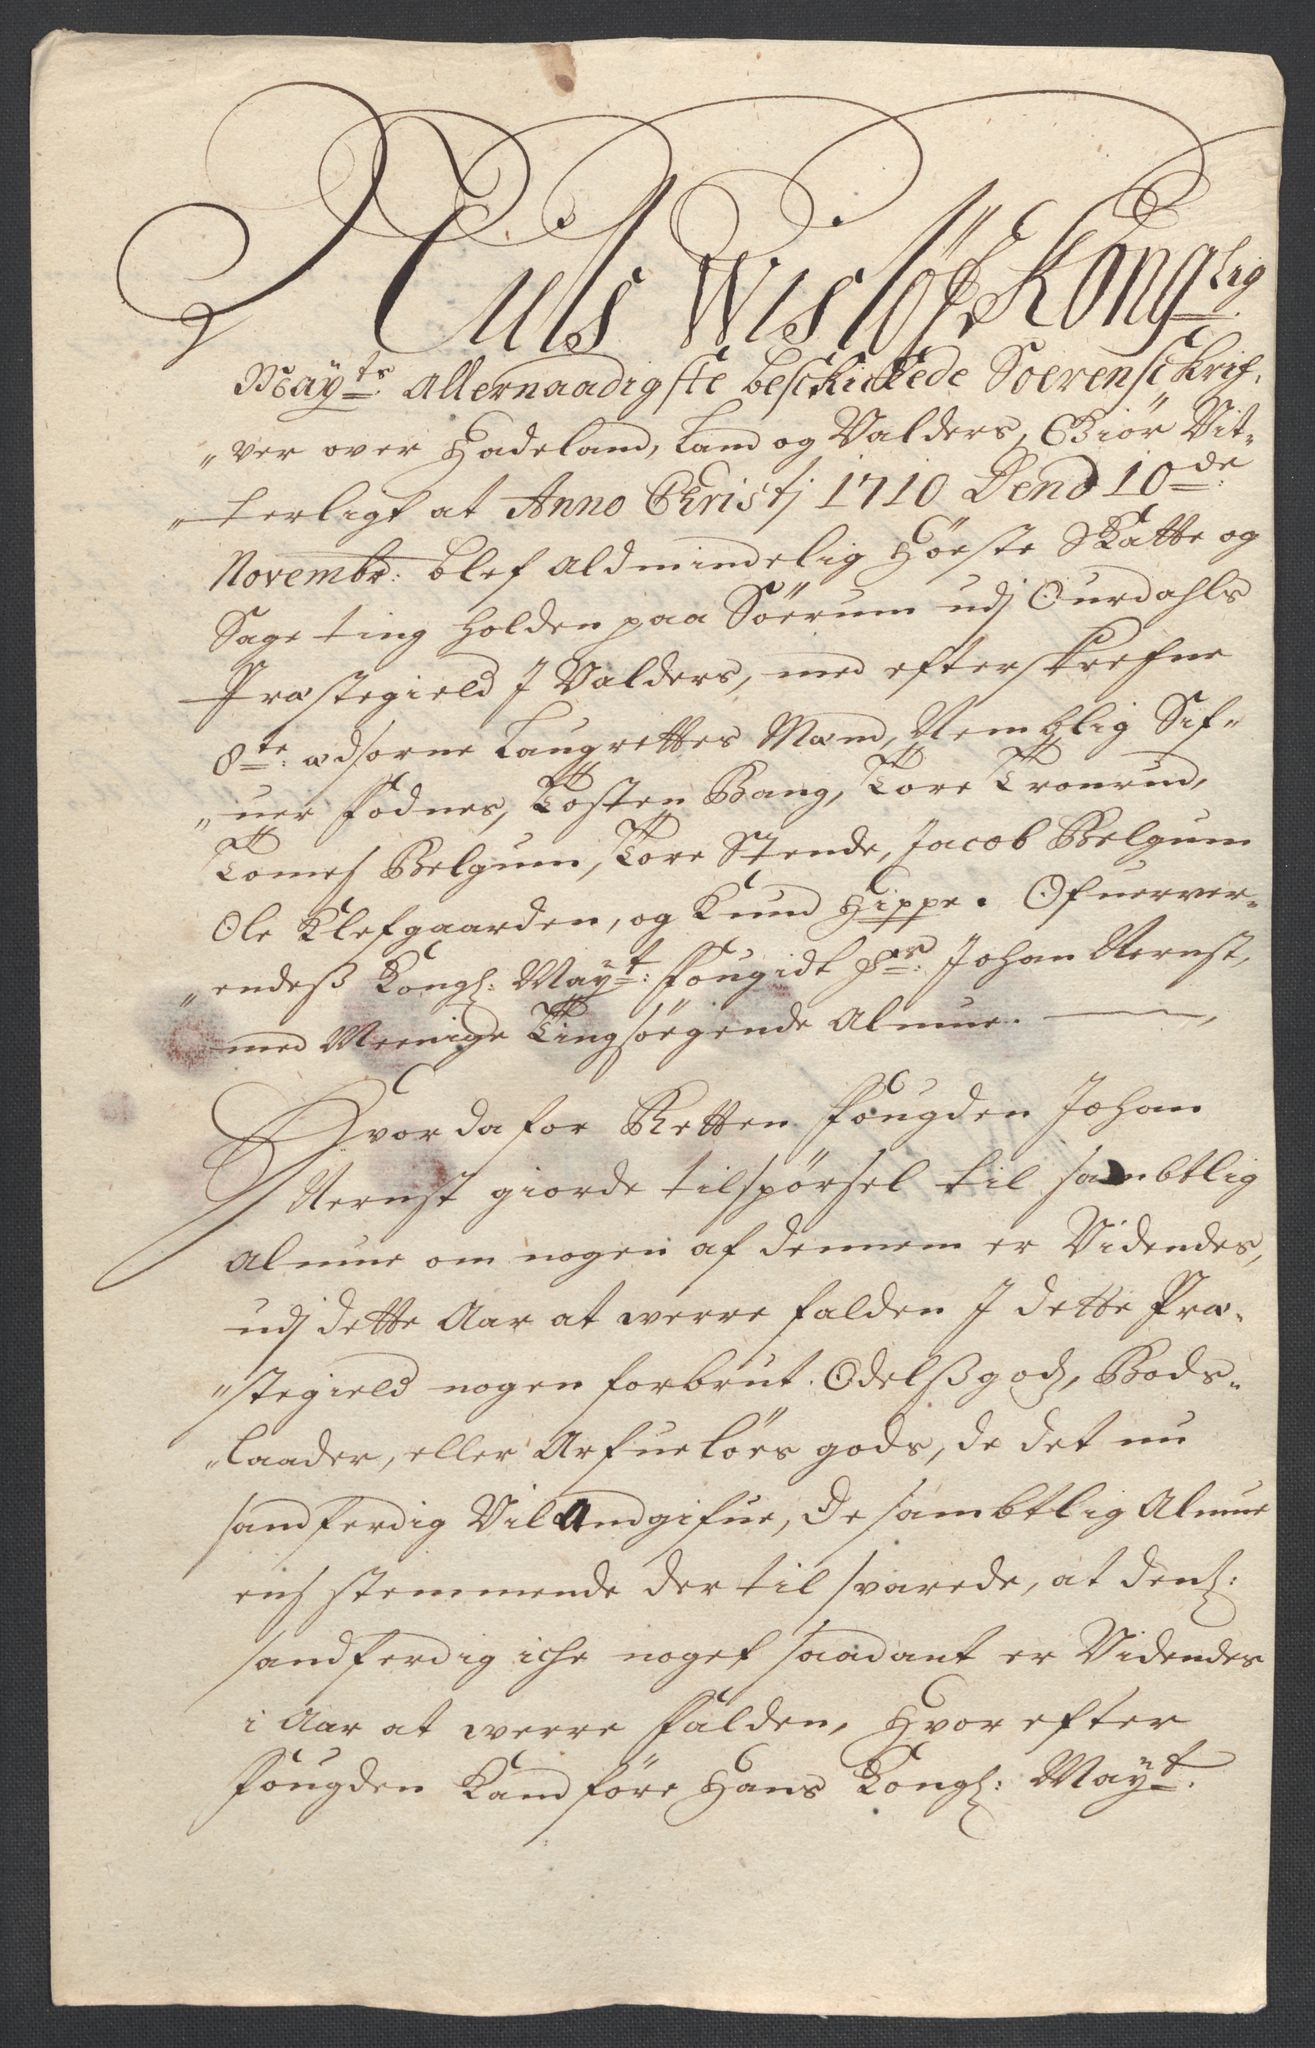 Niels Wisløf, Kong: lig
Mayts. allernaadigste beskickede Soerenschrif,
„ver over Hadeland, Land og Valders, Giör Vit„
„terligt at Anno Christj 1710 Dend 10de:
Novembr: blef aldmindelig Höeste Skatte og
Sage ting holden paa Söerum udj Ourdahls
Præstegield J Valders, med efterskrefne
8te: ædsorne Laugrettes Mænd, Nemblig Sif„
„uer Fodnes, Tosten Bang, Tore Tronrud,
Tomes Belgum, Tore Stende, Jacob Belgum
Ole Klefgaarden, og Knud Hippe. Ofuerver„
„endeß Kongl: Mayt: Fougidt Hr: Johan Nernst,
med Meenige Tingsögende Almue.
Hvor da for Retten Fougden Johan
Nernst giorde tilspörsel til sambtlig
Almue om nogen af dennem er Videndes,
udj dette Aar at werre falden J dette Præ„
„stegield nogen forbrut Odelßgods, Böds„
„laader, eller Arfuelöes gods, de det nu
sandferdig Vil Andgifue, de sambtlig Almue
eenstemmende der til svarede, at denes:
sandferdig iche noget saadant er Videndes
i Aar at werre Falden, Hvor efter
Fougden Kand före Hans Kongl: Mayt: